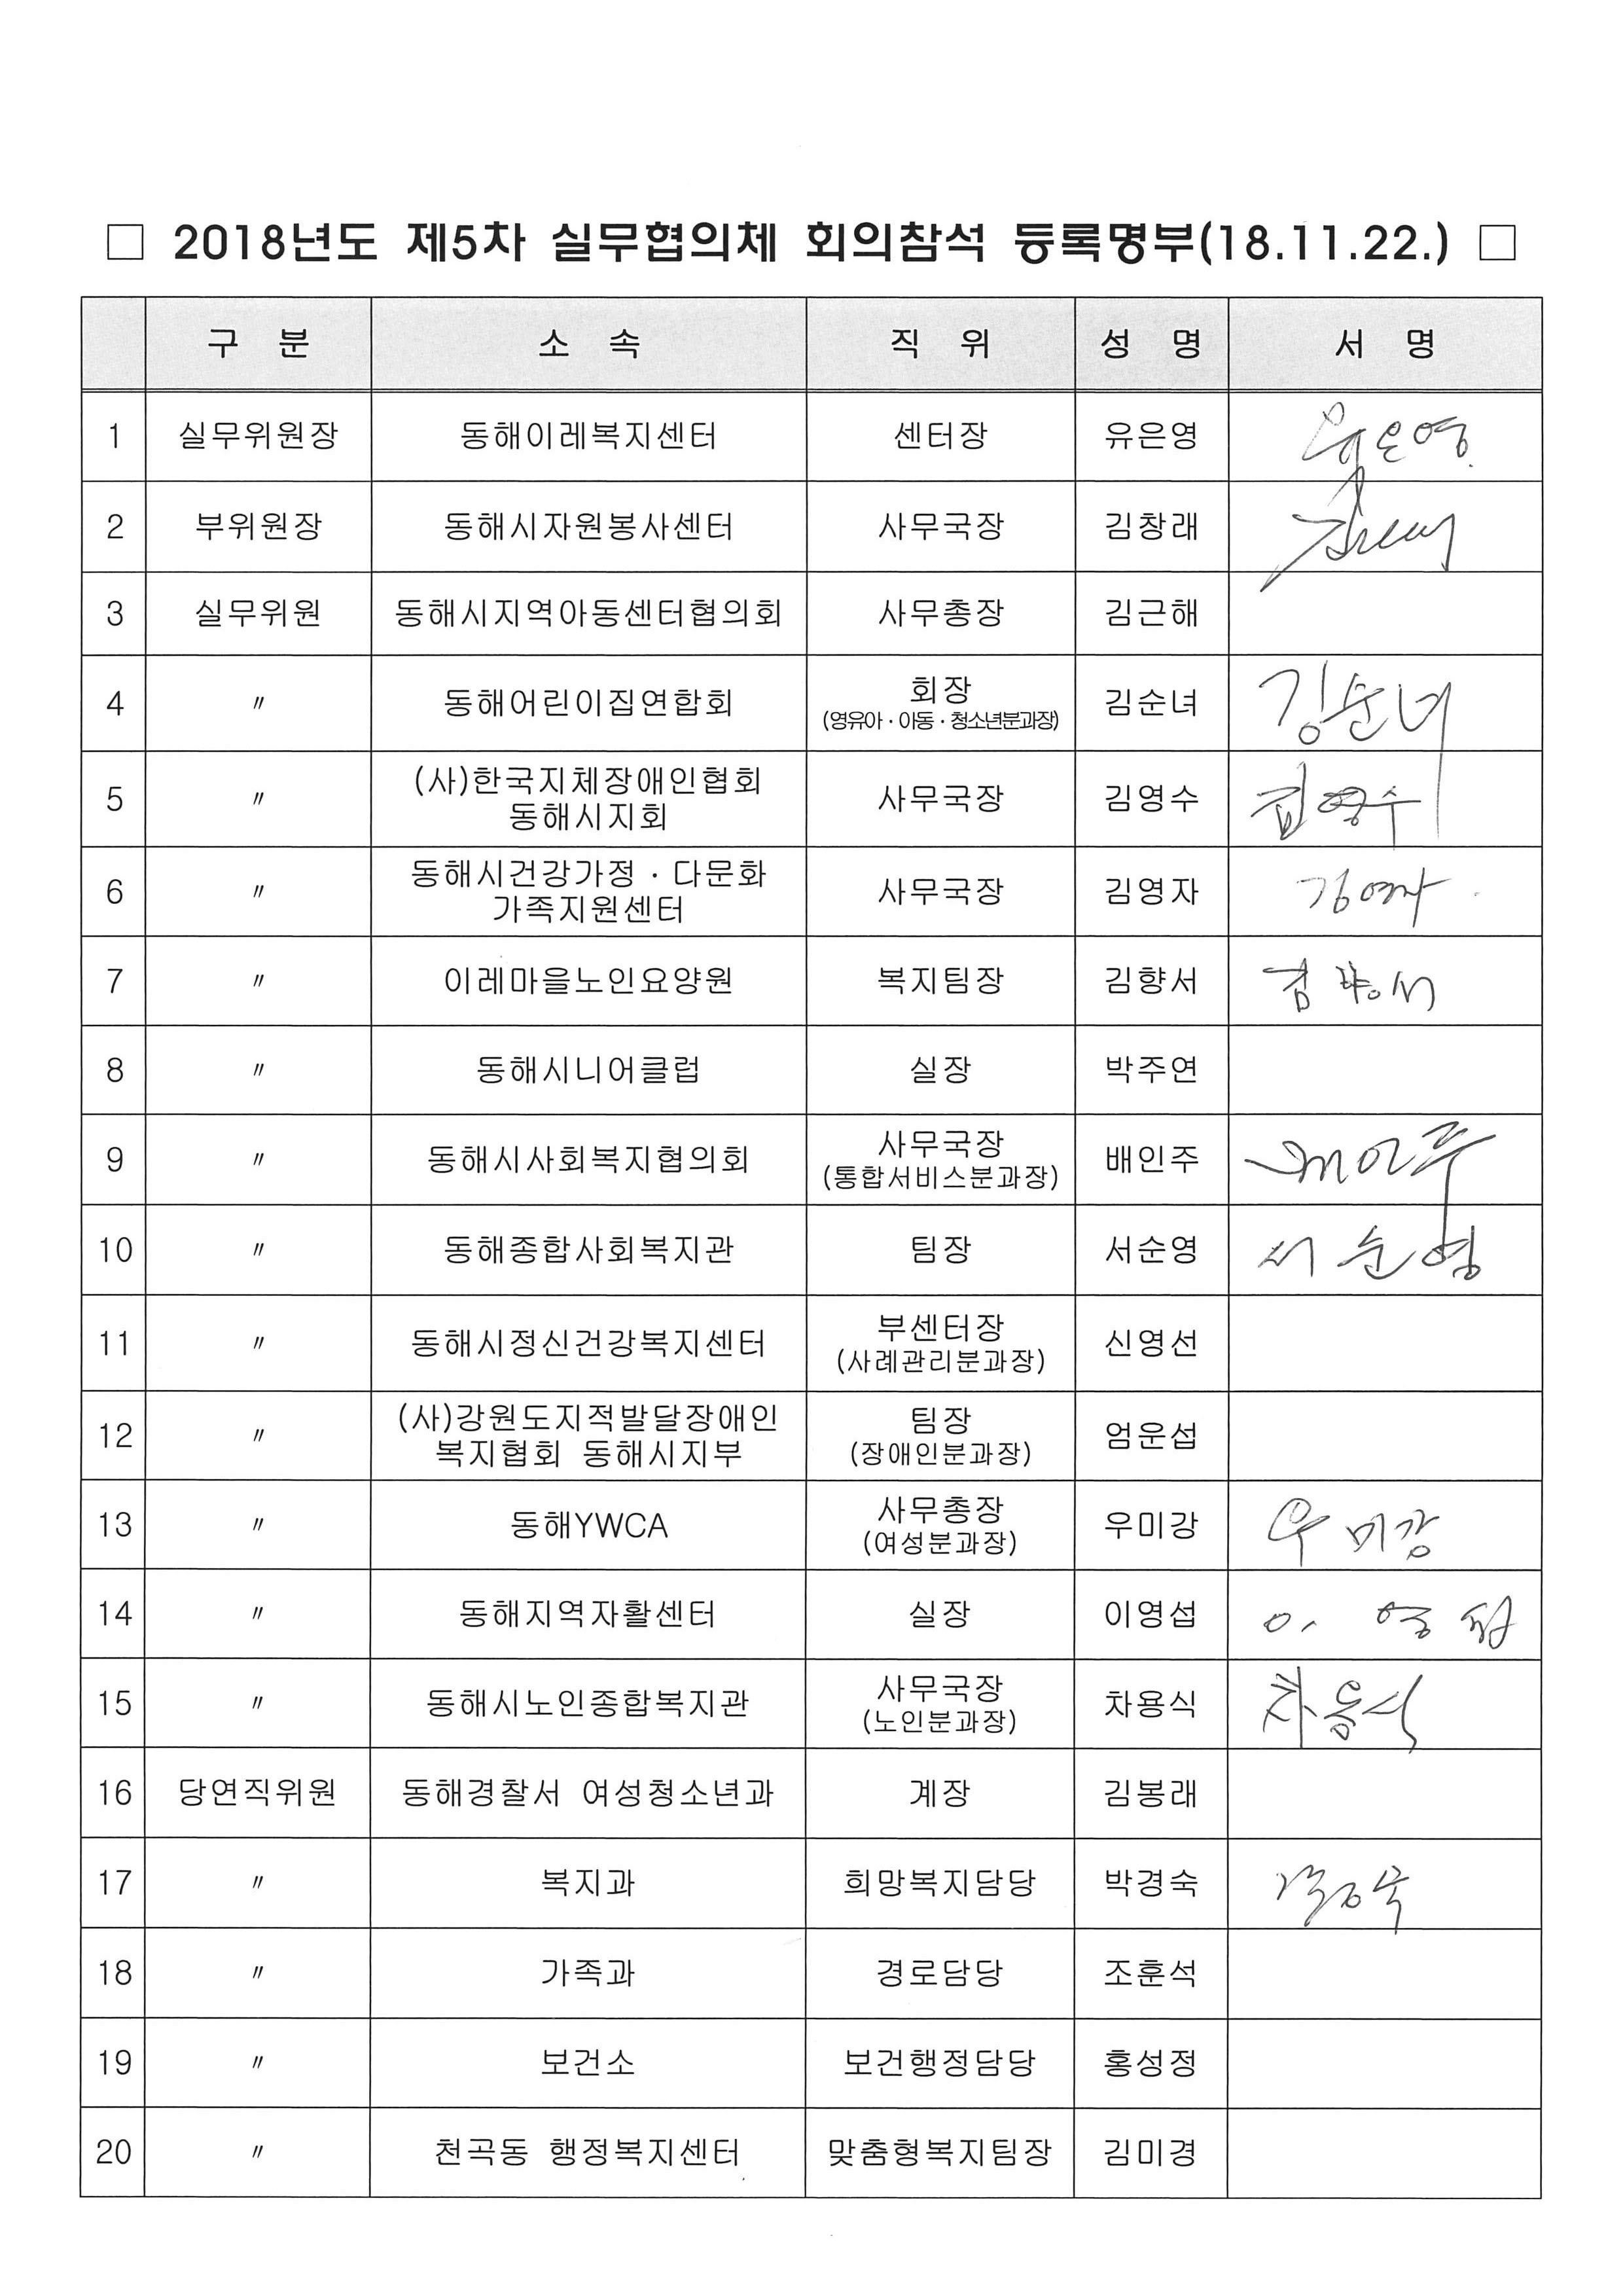 □ 2018년도 제5차 실무협의체 회의참석 등록명부(18.11.22.) □
구 분 소 속 직 위 성 명 서 명
1 실무위원장 동해이레복지센터 센터장 유은영 유은영
2 부위원장 동해시자원봉사센터 사무국장 김창래
3 실무위원 동해시지역아동센터협의회 사무총장 김근해
4 〃 동해어린이집연합회 회장 김순녀 김순녀
(영유아·아동·청소년분과장)
5 〃 (사)한국지체장애인협회 사무국장 김영수 김영수
동해시지회
6 〃 동해시건강가정·다문화 사무국장 김영자 김영자
가족지원센터
7 〃 이레마을노인요양원 복지팀장 김향서 김향서
8 〃 동해시니어클럽 실장 박주연
9 〃 동해시사회복지협의회 사무국장 배인주 배인주
(통합서비스분과장)
10 〃 동해종합사회복지관 팀장 서순영 서순영
11 〃 동해시정신건강복지센터 부센터장 신영선
(사례관리분과장)
12 〃 (사)강원도지적발달장애인 팀장 엄운섭
복지협회 동해시지부 (장애인분과장)
13 〃 동해YWCA 사무총장 우미강 우미강
(여성분과장)
14 〃 동해지역자활센터 실장 이영섭 이영섭
15 〃 동해시노인종합복지관 사무국장 차용식 차용식
(노인분과장)
16 당연직위원 동해경찰서 여성청소년과 계장 김봉래
17 〃 복지과 희망복지담당 박경숙
18 〃 가족과 경로담당 조훈석
19 〃 보건소 보건행정담당 홍성정
20 〃 천곡동 행정복지센터 맞춤형복지팀장 김미경